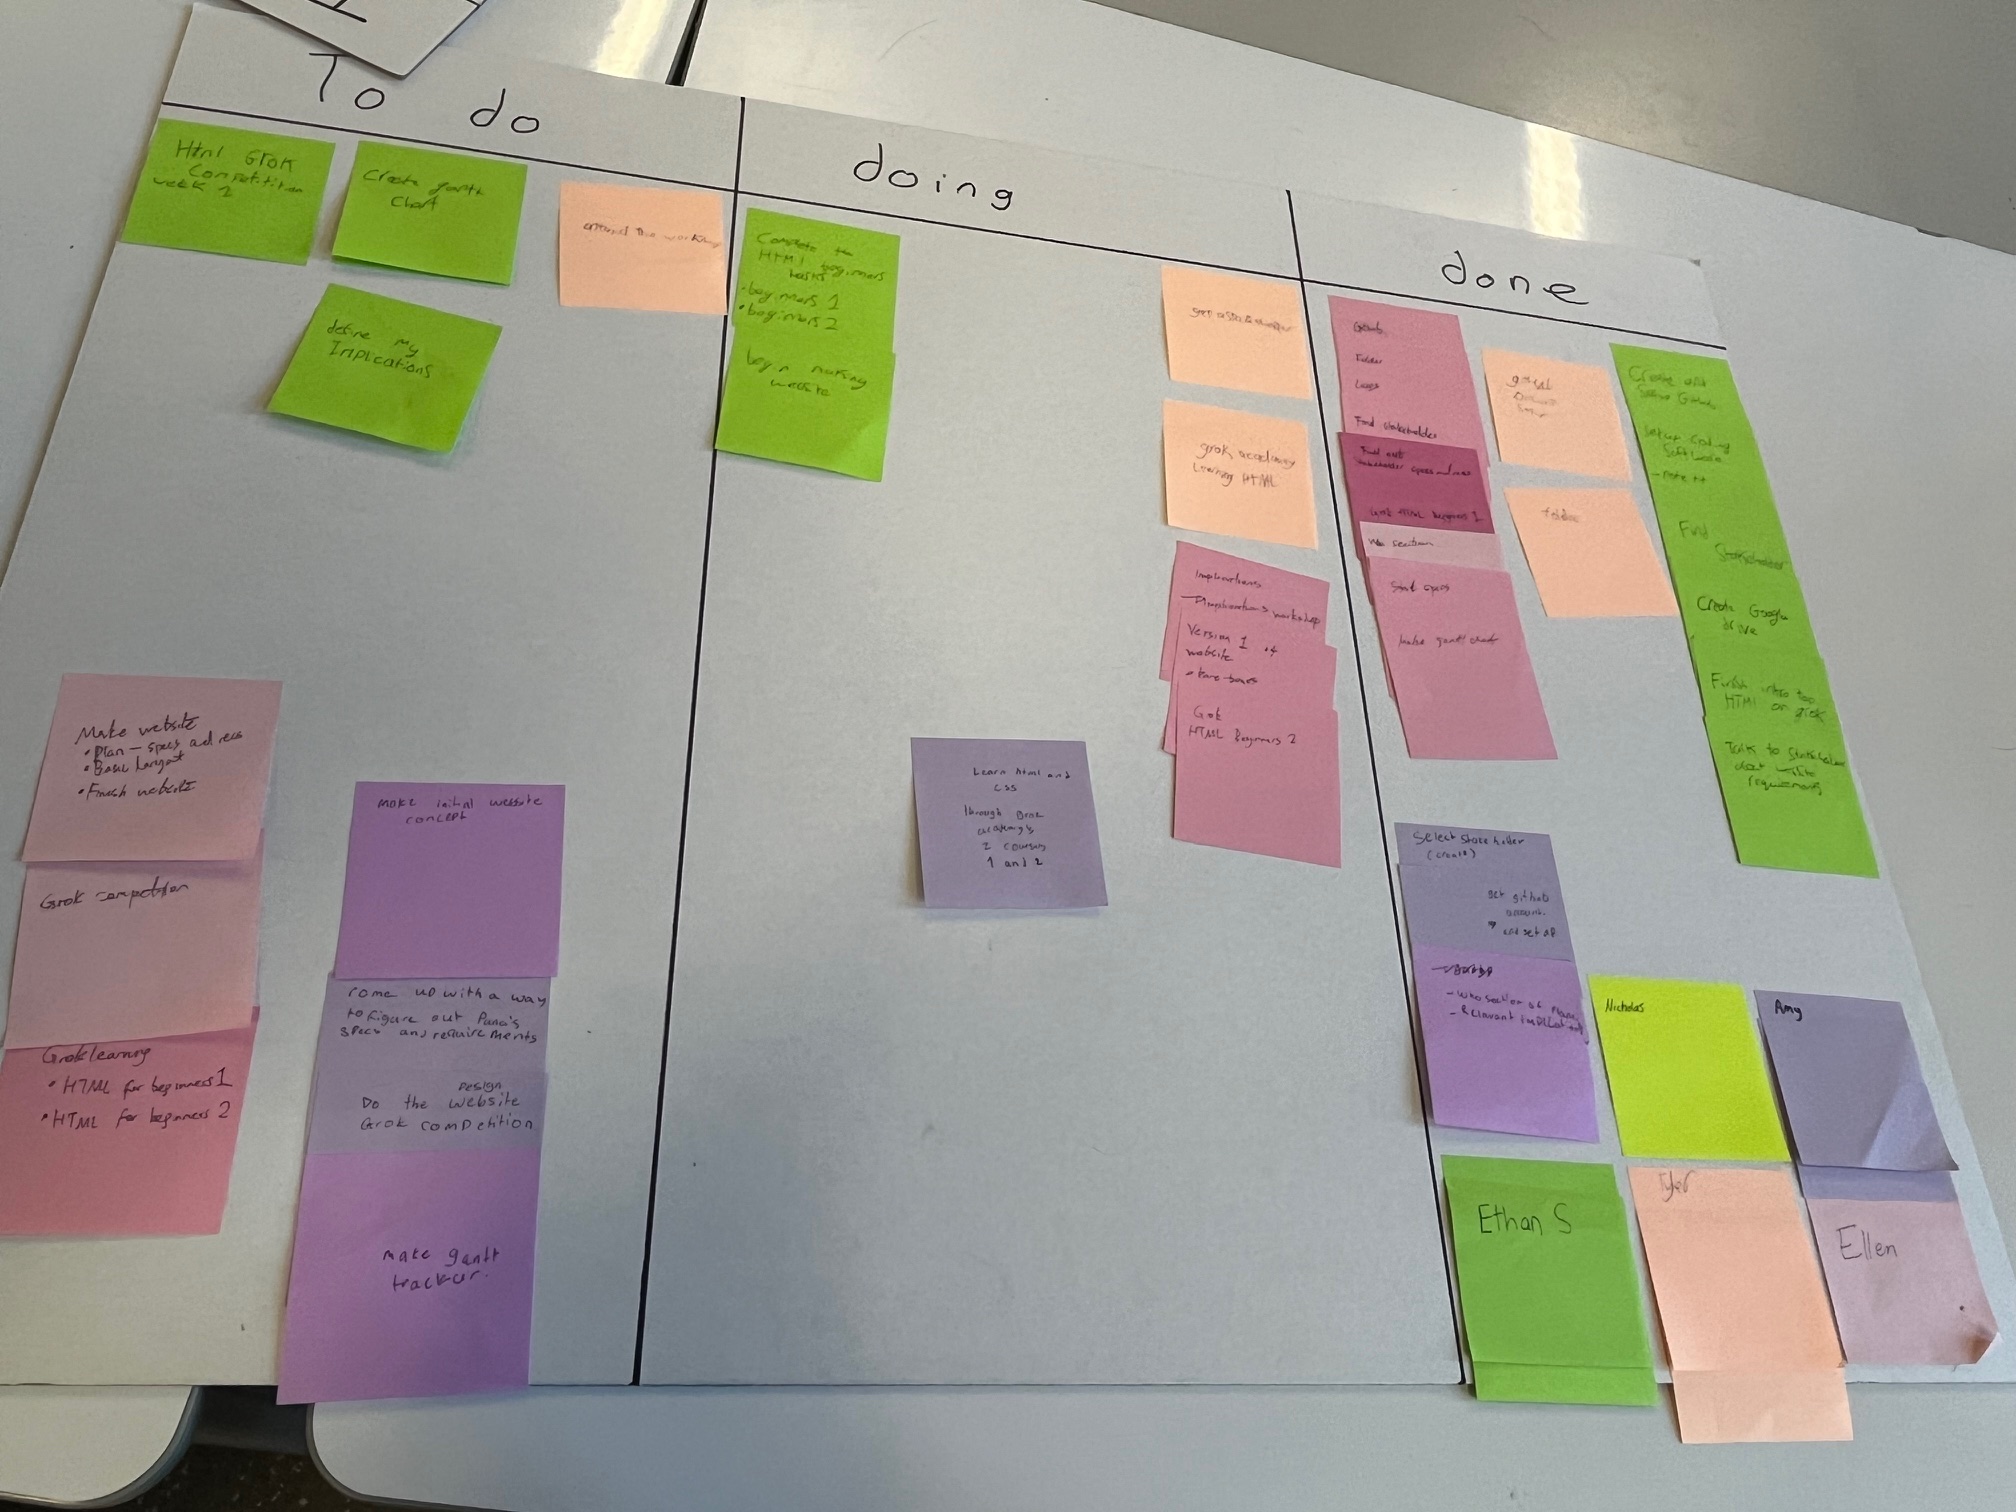 To do
Html Grok
Competition
week 2
Create gantt
Chart
define my
Implications
Make website
• Plan - specs and recs
• Basic layout
• Finish website
Grok competition
Grok learning
• HTML for beginners 1
• HTML for beginners 2
make initial website
concept
come up with a way
to figure out Pana's
specs and requirements
Do the website
design
Grok competition
make gantt
tracker.
doing
Complete the
HTML beginners
• beginners 1
• beginners 2
begin making
website
Learn html and
css
through Grok
academy's
2 courses
1 and 2
grok academy
Learning HTML
Implications
Implications workshop
Version 1 of
website
Grok
HTML Beginners 2
done
Github
Folder
Logo
Find stakeholder
Find out
stakeholder specs and recs
Grok HTML beginners 1
Start specs
Make gantt chart
folder
Create and
Setup Github
Find Stakeholder
Create Google
drive
Finish intro to
HTML on grok
Talk to Stakeholder
about website
requirements
select stakeholder
(create)
get github
account.
and set up
Ethan S
Nicholas
Tyler
Amy
Ellen